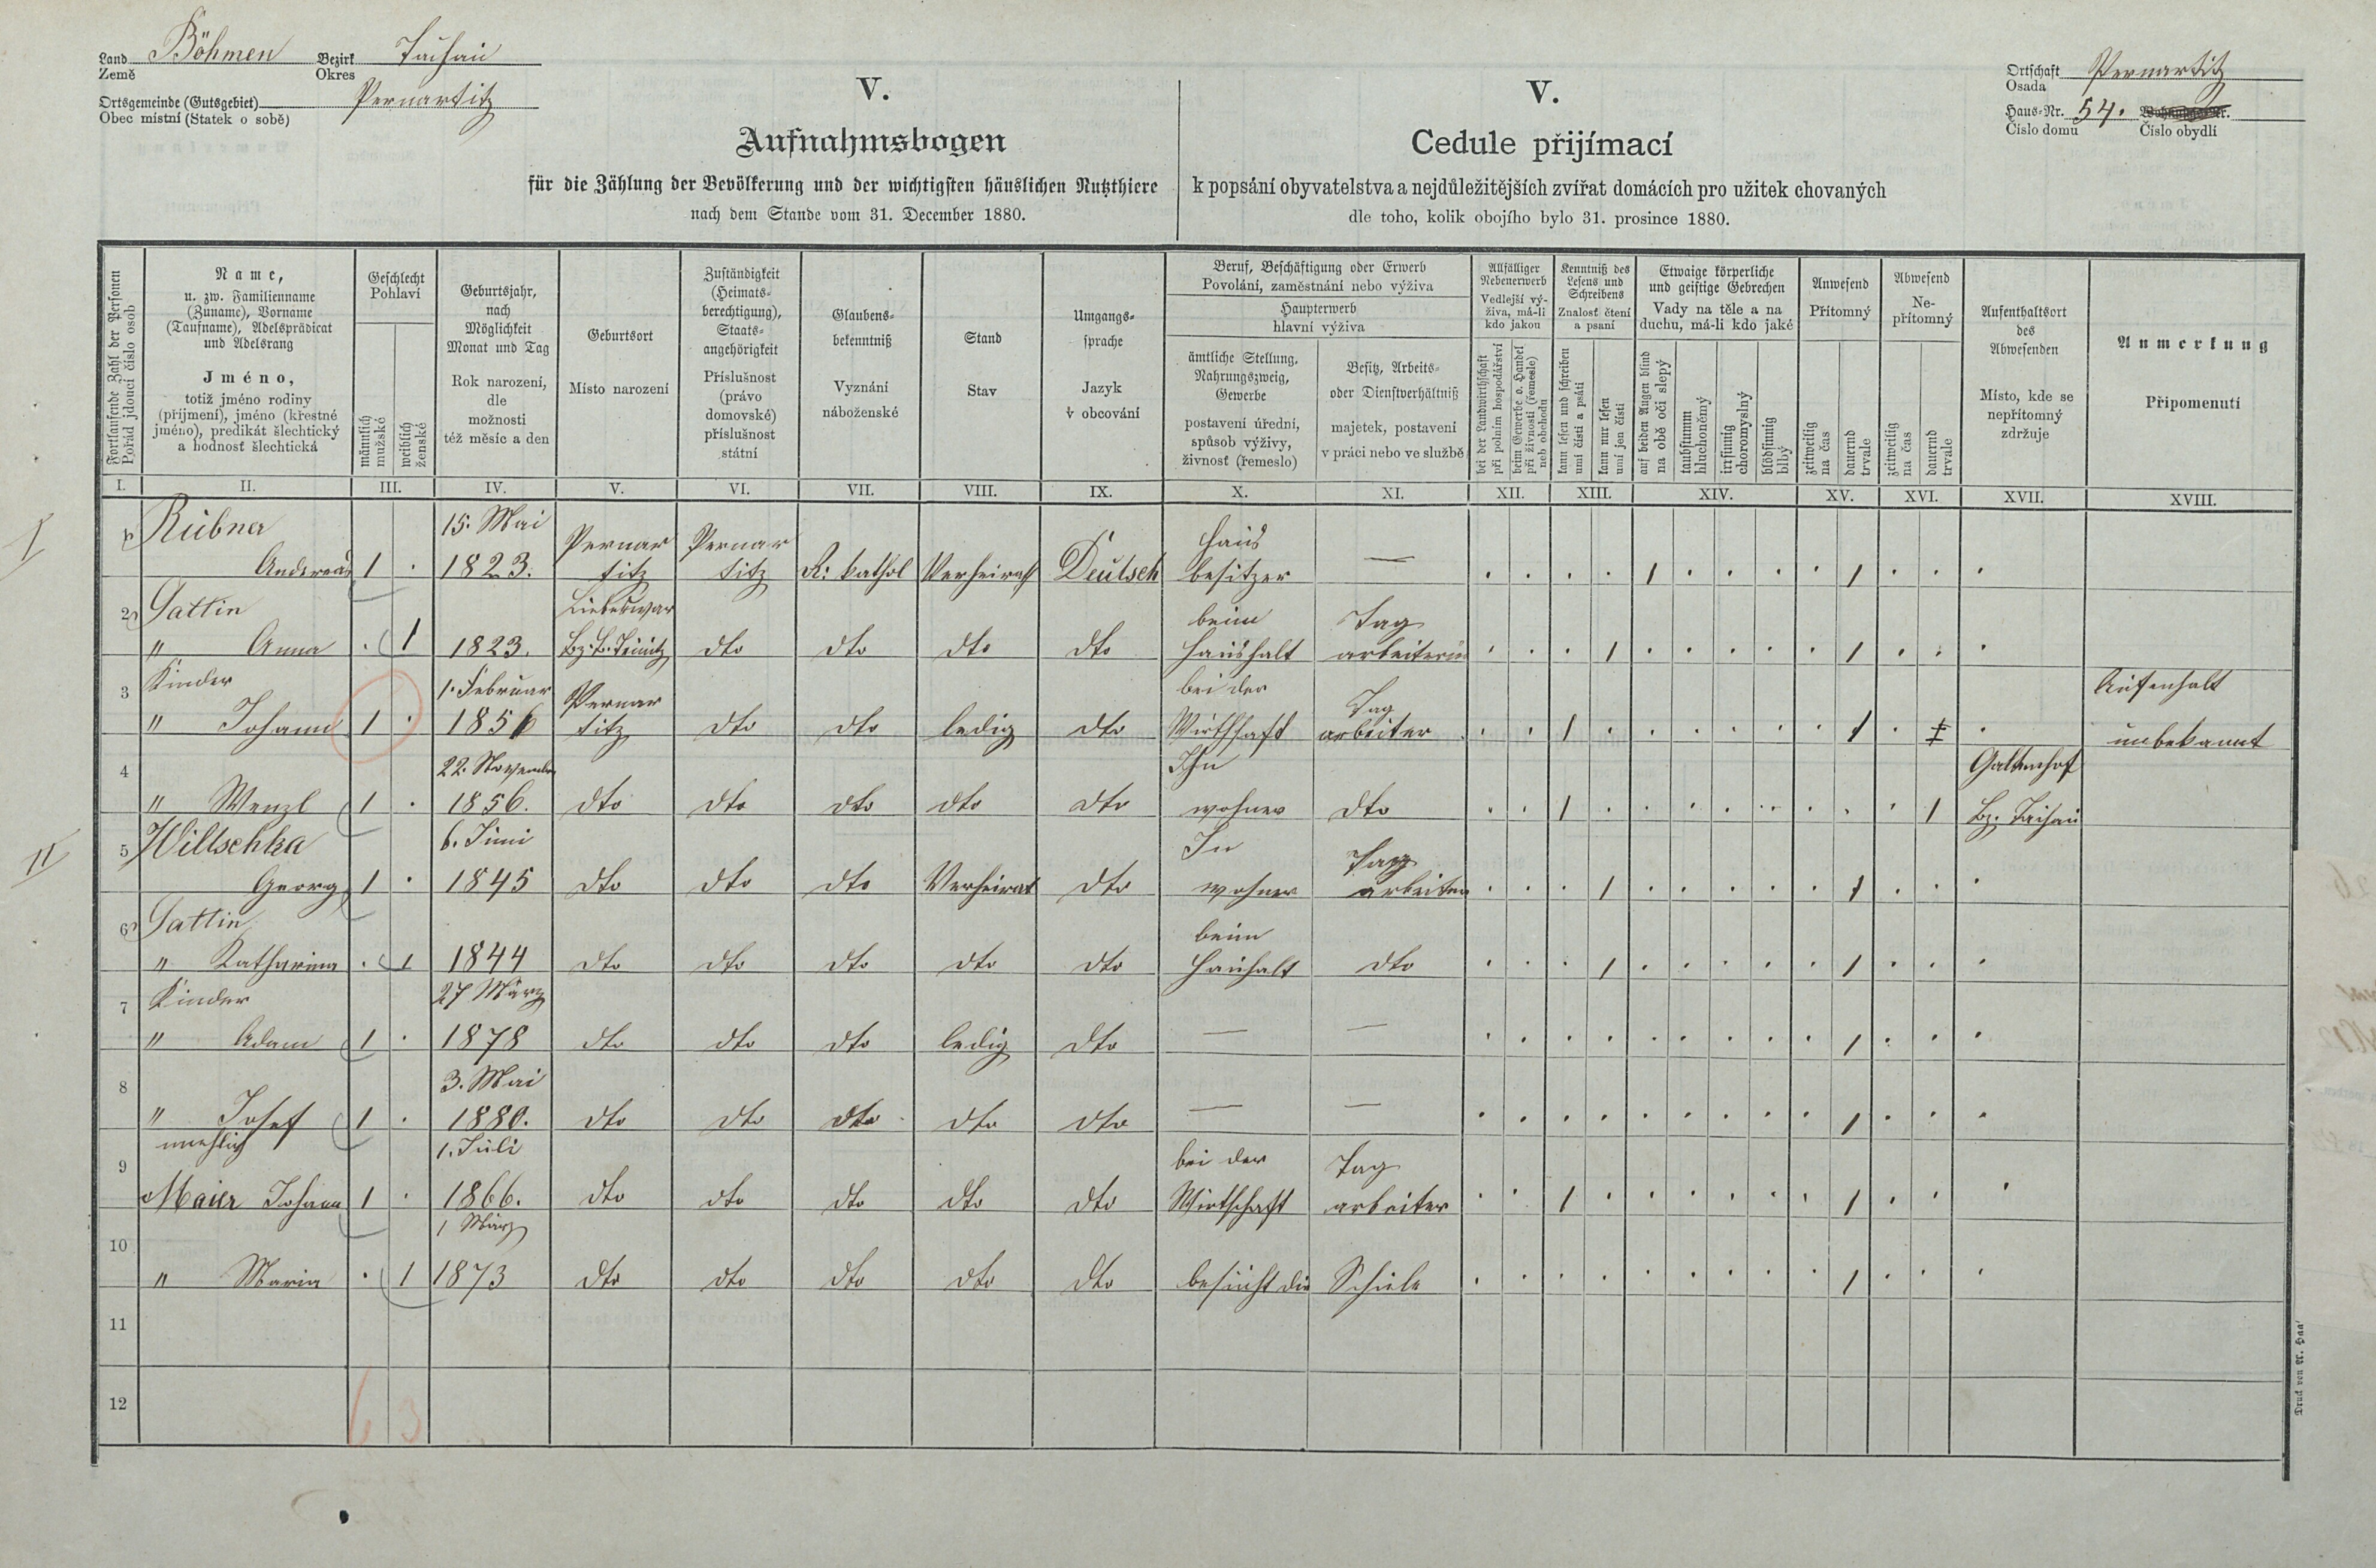 Land Böhmen Bezirk Tachau
Země Okres
Ortsgemeinde (Gutsgebiet) Pernartitz
Obec místní (Statek o sobě)
V.
Aufnahmsbogen
für die Zählung der Bevölkerung und der wichtigsten häuslichen Nutzthiere
nach dem Stande vom 31. December 1880.
V.
Cedule přijímací
k popsání obyvatelstva a nejdůležitějších zvířat domácích pro užitek chovaných
dle toho, kolik obojího bylo 31. prosince 1880.
Ortschaft Pernartitz
Osada
Haus-Nr. 54.
Číslo domu Číslo obydlí
Fortlaufende Zahl der Personen
Pořád jdoucí číslo osob
Name,
u. zw. Familienname
(Zuname), Vorname
(Taufname), Adelsprädicat
und Adelsrang
Jméno,
totiž jméno rodiny
(příjmení), jméno (křestné
jméno), predikát šlechtický
a hodnosť šlechtická
Geschlecht
Pohlaví
männlich
mužské
weiblich
ženské
Geburtsjahr,
nach
Möglichkeit
Monat und Tag
Rok narození,
dle
možnosti
též měsíc a den
Geburtsort
Místo narození
Zuständigkeit
(Heimats-
berechtigung),
Staats-
angehörigkeit
Příslušnost
(právo
domovské)
příslušnost
státní
Glaubens-
bekenntniß
Vyznání
náboženské
Stand
Stav
Umgangs-
sprache
Jazyk
v obcování
Beruf, Beschäftigung oder Erwerb
Povolání, zaměstnání nebo výživa
Haupterwerb
hlavní výživa
ämtliche Stellung,
Nahrungszweig,
Gewerbe
postavení úřední,
způsob výživy,
živnosť (řemeslo)
Besitz, Arbeits-
oder Dienstverhältniß
majetek, postavení
v práci nebo ve službě
Allfälliger
Nebenerwerb
Vedlejší vý-
živa, má-li
kdo jakou
bei der Landwirthschaft
při polním hospodářství
beim Gewerbe o. Handel
při živnosti (řemesle)
neb obchodu
Kenntniß des
Lesens und
Schreibens
Znalosť čtení
a psaní
kann lesen und schreiben
umí čísti a psáti
kann nur lesen
umí jen čísti
Etwaige körperliche
und geistige Gebrechen
Vady na těle a na
duchu, má-li kdo jaké
auf beiden Augen blind
na obě oči slepý
taubstumm
hluchoněmý
irrsinnig
choromyslný
blödsinnig
blbý
Anwesend
Přítomný
zeitweilig
na čas
dauernd
trvale
Abwesend
Ne-
přítomný
zeitweilig
na čas
dauernd
trvale
Aufenthaltsort
des
Abwesenden
Místo, kde se
nepřítomný
zdržuje
Anmerkung
Připomenutí
I. II. III. IV. V. VI. VII. VIII. IX. X. XI. XII. XIII. XIV. XV. XVI. XVII. XVIII.
I
1 Rübner 15. Mai Pernar Pernar Haus
Andreas 1 . 1823. titz titz R: kathol Verheirath Deutsch besitzer — . . . . 1 . . . . 1 . . .
2 Gattin beim Tag
" Anna . 1 1823. dto dto dto dto Haushalt arbeiterin . . . 1 . . . . . 1 . . .
3 Kinder 1. Februar Pernar bei der Tag Aufenhalt
" Johann 1 . 1856 titz dto dto ledig dto Wirthschaft arbeiter . . 1 . . . . . . 1 . . unbekannt
4 22. November Ihn
" Wenzl 1 . 1856. dto dto dto dto dto wohner dto . . 1 . . . . . . . . 1 Bz. Tachau
II
5 Willschka 6. Juni In Tag
Georg 1 . 1845 dto dto dto Verheirat dto wohner arbeiter . . . 1 . . . . . 1 . . .
6 Gattin beim
" Katharina . 1 1844 dto dto dto dto dto Haushalt dto . . . 1 . . . . . 1 . . .
7 Kinder 27 März
" Adam 1 . 1878 dto dto dto ledig dto — — . . . . . . . . . 1 . . .
8 3. Mai
" Josef 1 . 1880. dto dto dto dto dto — — . . . . . . . . . 1 . . .
9 unehlich 1. Juli bei der Tag
Maier Johann 1 . 1866. dto dto dto dto dto Wirtschaft arbeiter . . 1 . . . . . . 1 . . .
10 1 März
" Maria . 1 1873 dto dto dto dto dto besucht die Schule . . . . . . . . . 1 . . .
11
12
6 3